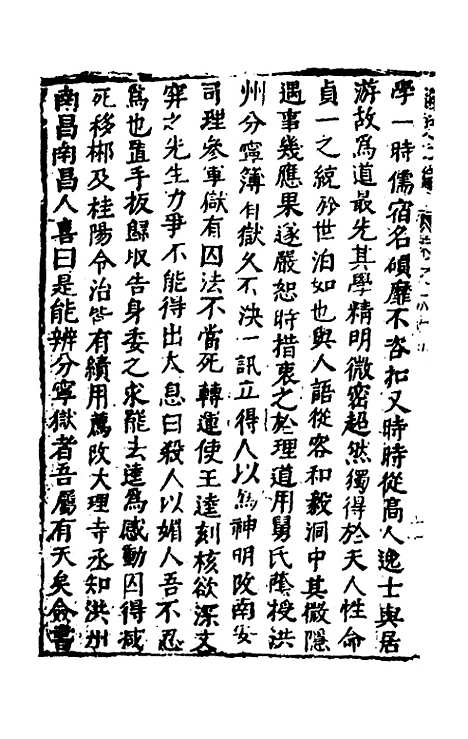 學一時儒宿名碩靡不咨扣又時時從高人逸士與居
游故爲道最先其學精明微密超然獨得於天人性命
貞一之統於世泊如也與人語從容和毅洞中其微隱
遇事幾應果遂嚴恕時措衷之於理道用舅氏蔭授洪
州分寧簿有獄久不決一訊立得人以爲神明改南安
司理參軍獄有囚法不當死轉運使王逵刻核欲深文
穽之先生力爭不能得出太息曰殺人以媚人吾不忍
爲也置手板歸取告身委之求罷去逵爲感動囚得減
死移郴及桂陽令治皆有績用薦改大理寺丞知洪州
南昌南昌人喜曰是能辨分寧獄者吾屬有天矣僉書